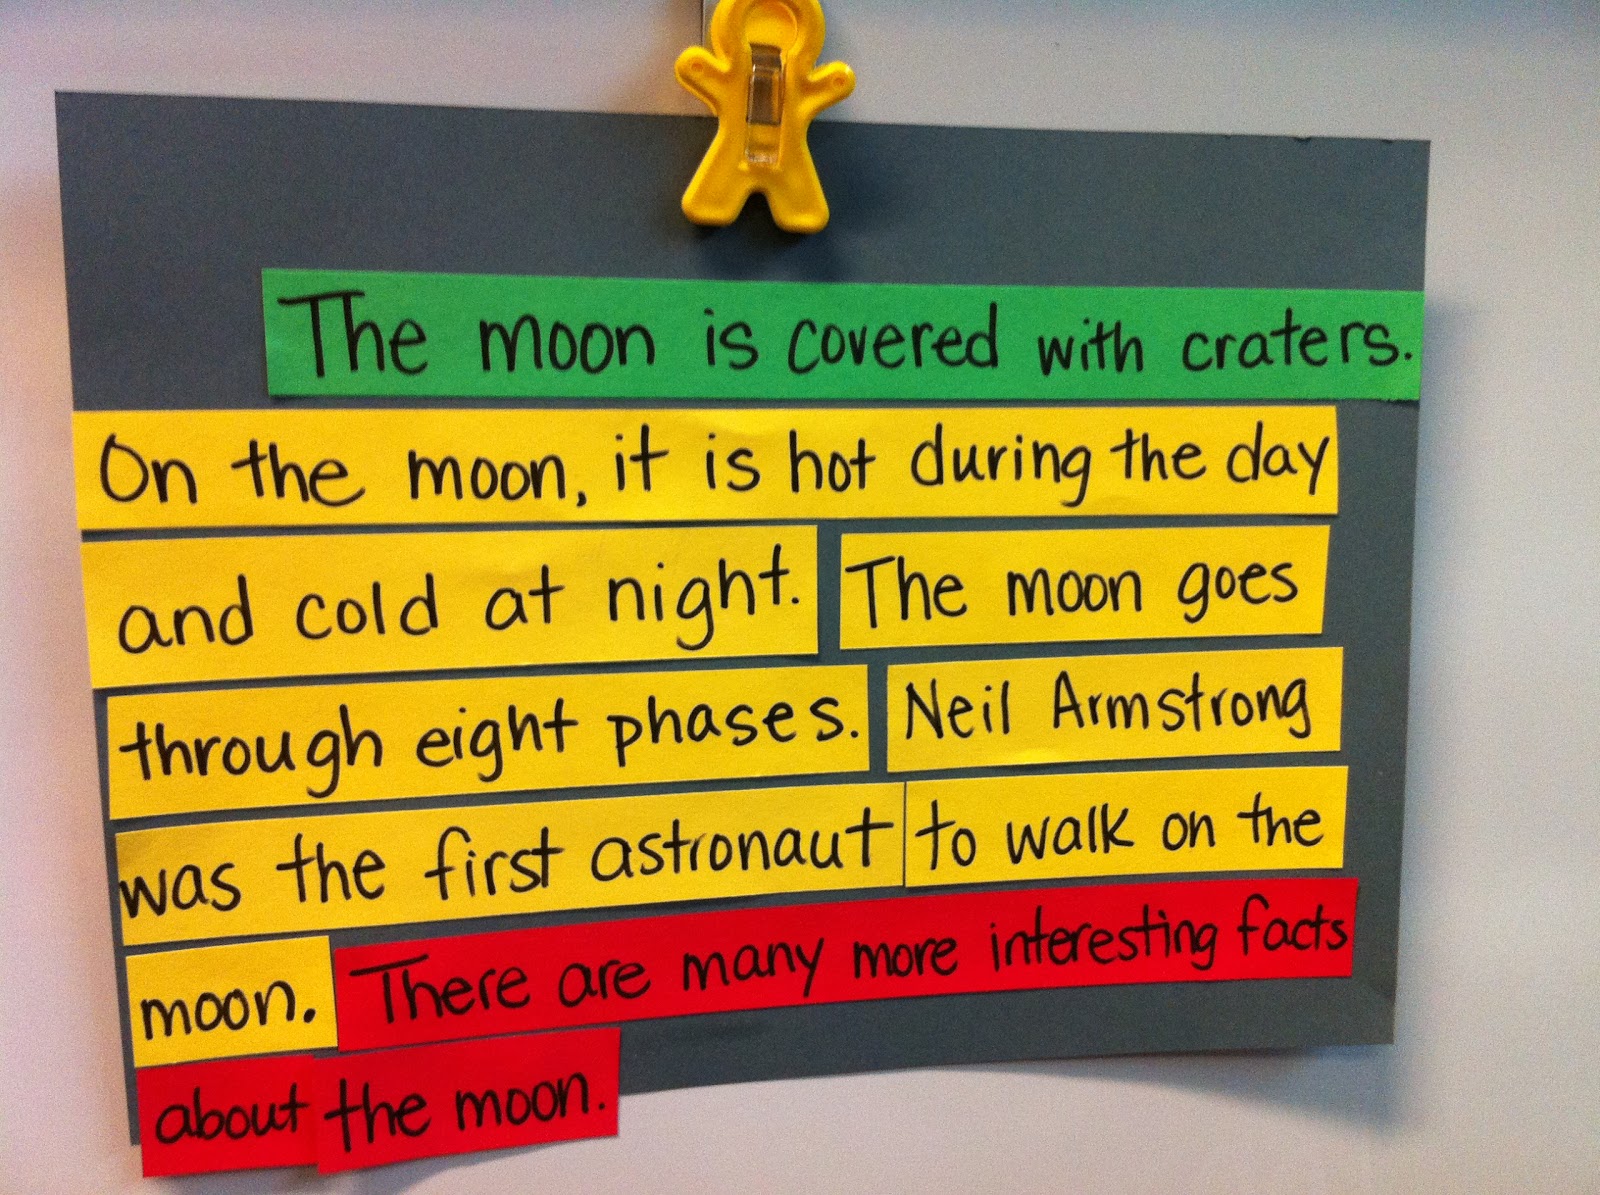 The moon is covered with craters.
On the moon, it is hot during the day
and cold at night. The moon goes
through eight phases. Neil Armstrong
was the first astronaut to walk on the
moon. There are many more interesting facts
about the moon.